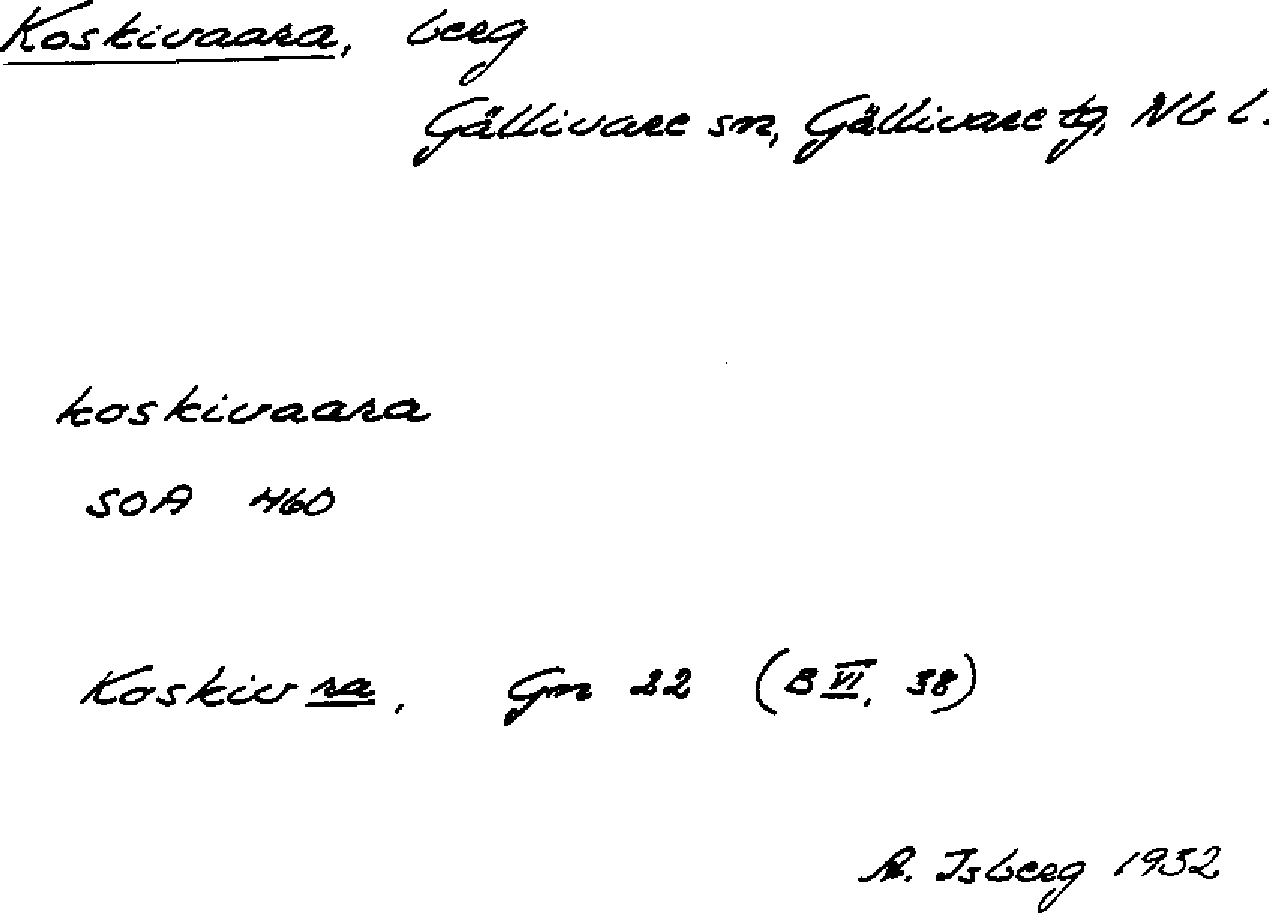 Koskivaara, berg
Gällivare sn, Gällivare tg, Nb l.
koskivaara
SOA 460
Koskivra, Gm 22 (B VI, 38)
A. Isberg 1932